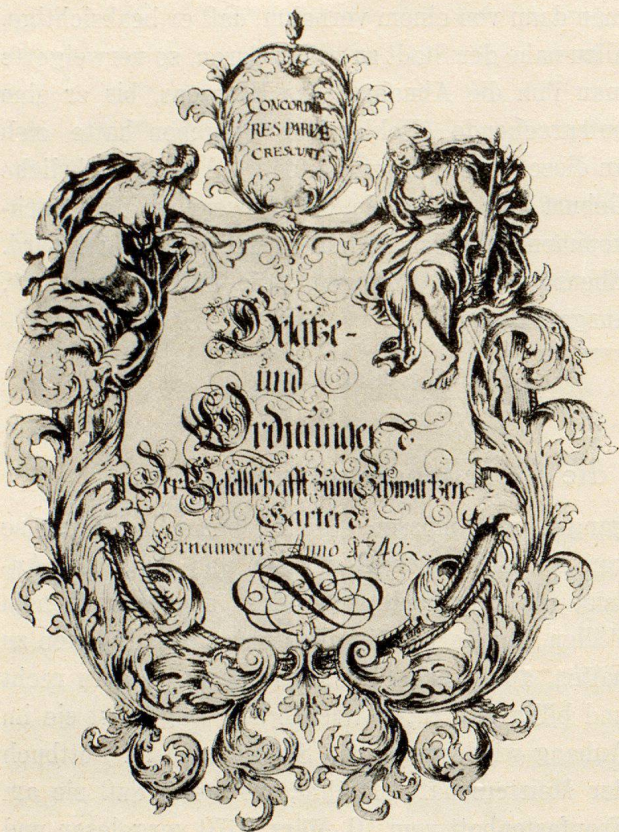 CONCORDIA
RES PARVÆ
CRESCUNT.
Gesätze-
und
Ordnungen
Der Gesellschafft zum Schwartzen
Garten
Erneuweret Anno 1740.